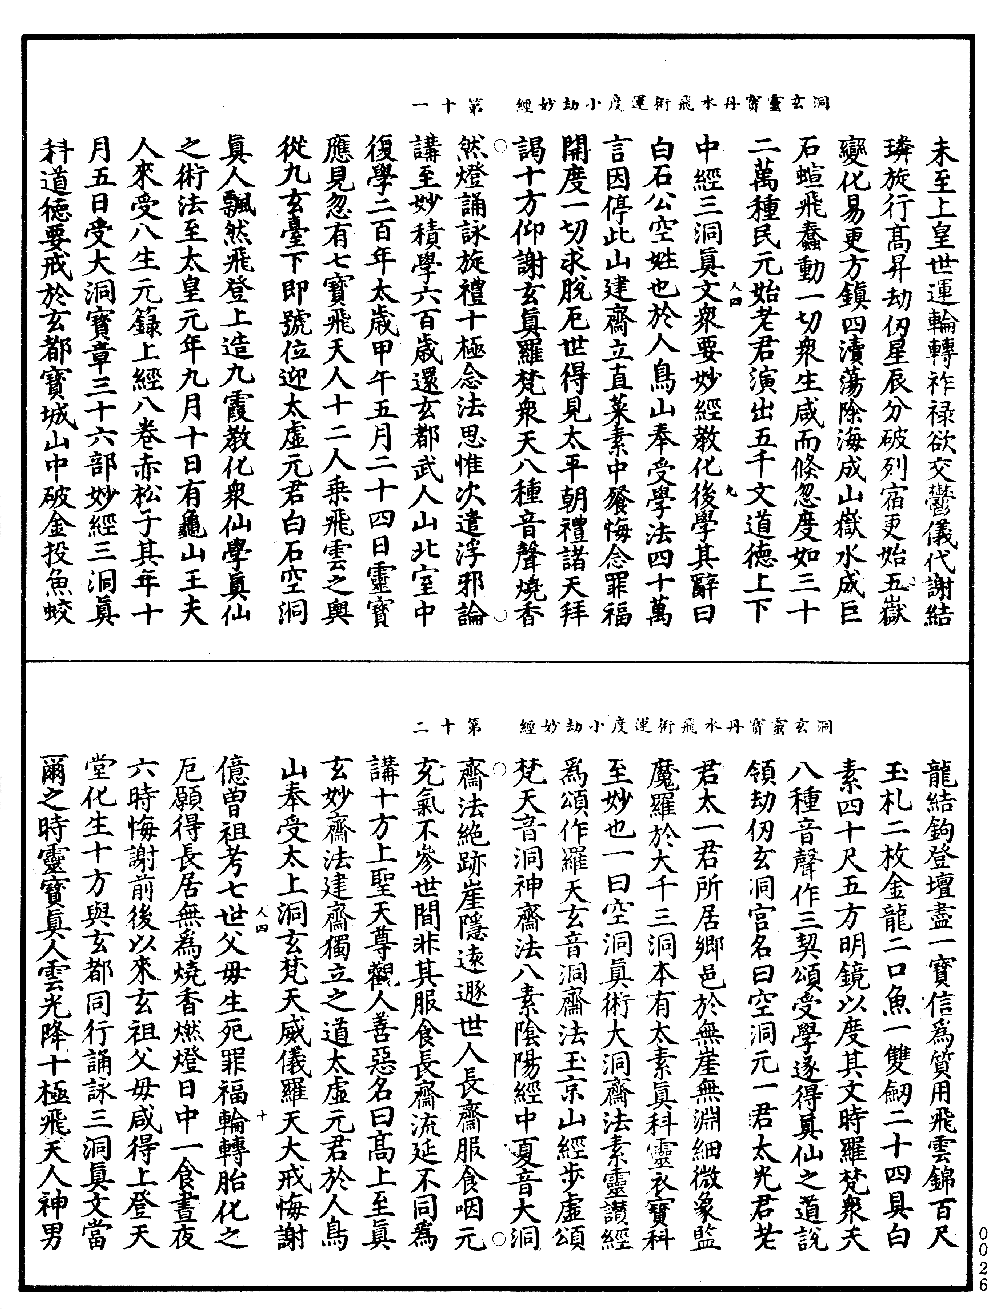 洞玄靈寶丹水飛術運度小劫妙經　第十一
未至上皇世運輪轉祚祿欲交鬱儀代謝結
璘旋行高昇劫仞星辰分破列宿更始五嶽
變化易更方鎮四瀆蕩除海成山嶽水成巨
石蝖飛蠢動一切衆生咸而倏忽度如三十
二萬種民元始老君演出五千文道德上下
中經三洞眞文衆要妙經教化後學其辭曰
白石公空姓也於人鳥山奉受學法四十萬
言因停此山建齋立直菜素中發悔念罪福
開度一切求脫厄世得見太平朝禮諸天拜
謁十方仰謝玄眞羅梵衆天八種音聲燒香
然燈誦詠旋禮十極念法思惟次遣浮邪論
講至妙積學六百歲還玄都武人山北室中
復學二百年太歲甲午五月二十四日靈寶
應見忽有七寶飛天人十二人乘飛雲之輿
從九玄臺下即號位迎太虛元君白石空洞
眞人飄然飛登上造九霞教化衆仙學眞仙
之術法至太皇元年九月十日有龜山王夫
人來受八生元籙上經八卷赤松子其年十
月五日受大洞寶章三十六部妙經三洞眞
科道德要戒於玄都寶城山中破金投魚蛟
人四
九
洞玄靈寶丹水飛術運度小劫妙經　第十二
龍結鉤登壇盡一寶信爲質用飛雲錦百尺
玉札二枚金龍二口魚一雙釰二十四具白
素四十尺五方明鏡以度其文時羅梵衆天
八種音聲作三契頌受學遂得眞仙之道說
領劫仞玄洞宮名曰空洞元一君太光君老
君太一君所居鄉邑於無崖無淵細微象監
魔羅於大千三洞本有太素眞科靈衣寶科
至妙也一曰空洞眞術大洞齋法素靈讃經
爲頌作羅天玄音洞齋法玉京山經步虛頌
梵天音洞神齋法八素陰陽經中夏音大洞
齋法絕跡崖隱遠遯世人長齋服食咽元
充氣不滲世間非其服食長齋流延不同爲
講十方上聖天尊觀人善惡名曰高上至眞
玄妙齋法建齋獨立之道太虛元君於人鳥
山奉受太上洞玄梵天威儀羅天大戒悔謝
億曾祖考七世父母生死罪福輪轉胎化之
厄願得長居無爲燒香燃燈日中一食晝夜
六時悔謝前後以來玄祖父母咸得上登天
堂化生十方與玄都同行誦詠三洞眞文當
爾之時靈寶眞人雲光降十極飛天人神男
人四
十
0026